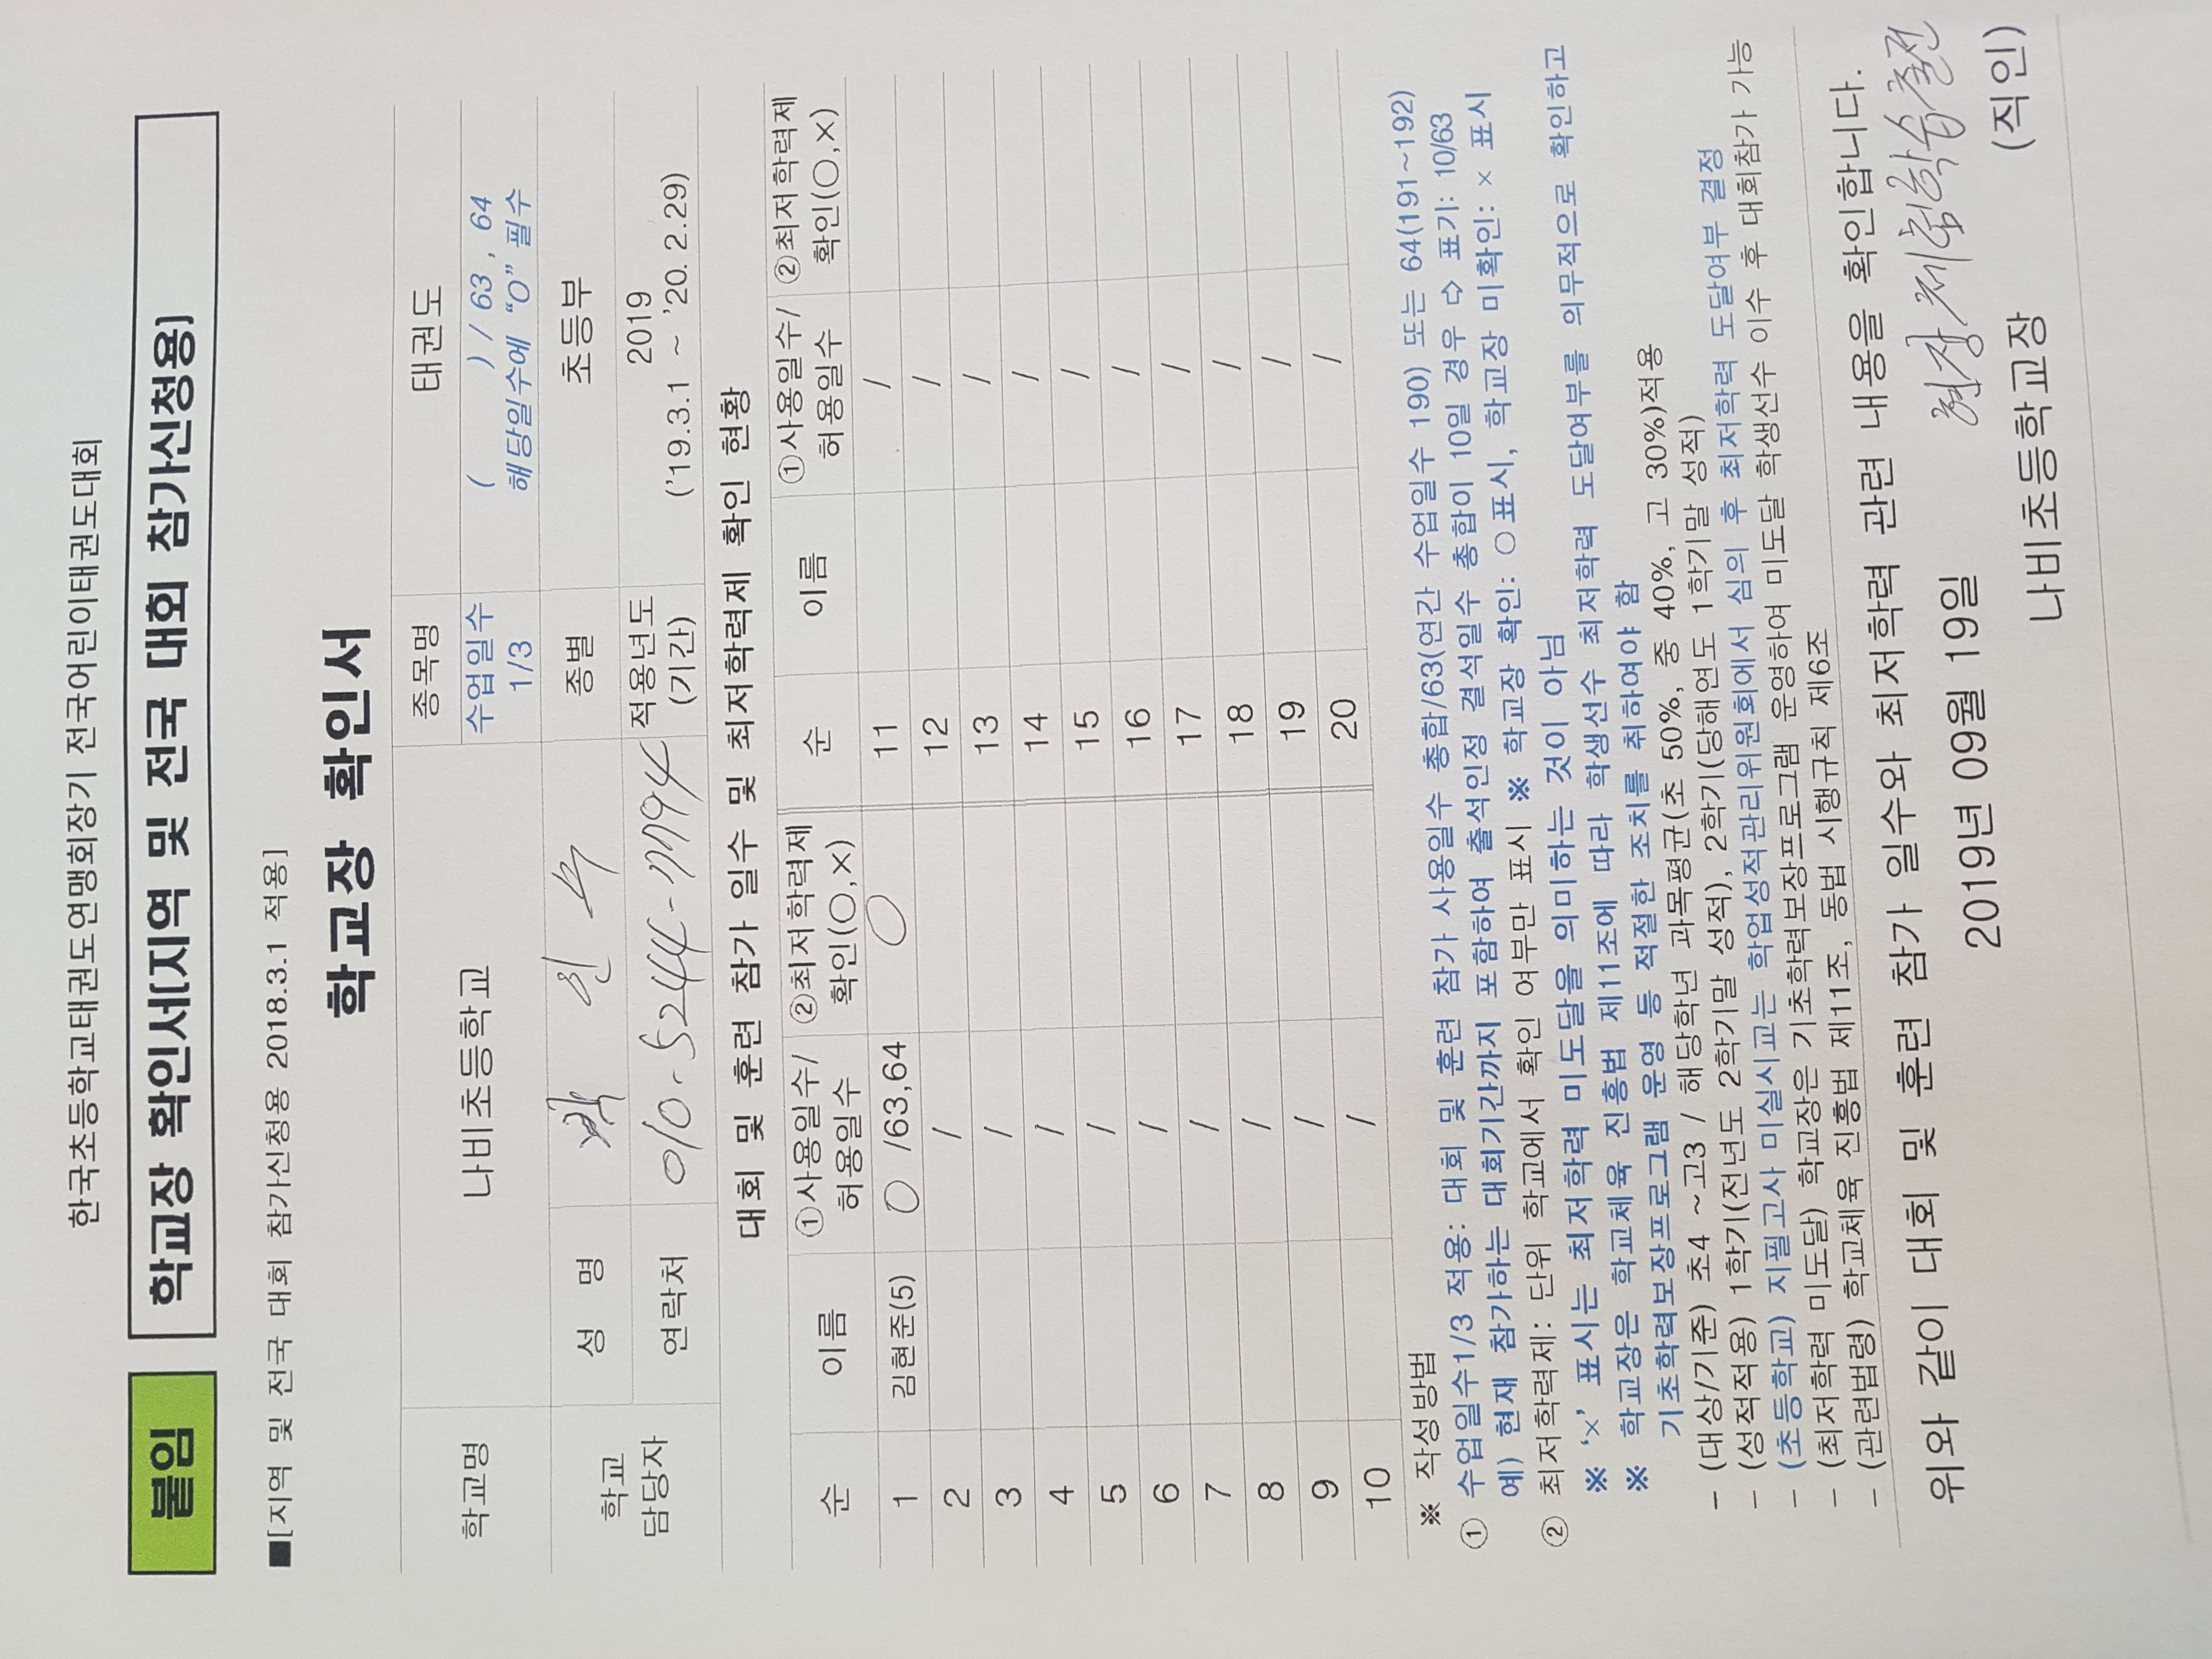 한국초등학교태권도연맹회장기 전국어린이태권도대회
붙임 학교장 확인서[지역 및 전국 대회 참가신청용]
■[지역 및 전국 대회 참가신청용 2018.3.1 적용]
학교장 확인서
학교명 나비초등학교 종목명 태권도
수업일수 1/3 ( ) / 63 , 64
해당일수에 “O” 필수
학교 담당자 성 명 종별 초등부
연락처 010-5244-7794 적용년도 (기간) 2019
('19.3.1 ~ '20. 2.29)
대회 및 훈련 참가 일수 및 최저학력제 확인 현황
순 이름 ①사용일수/허용일수 ②최저학력제 확인(○,×) 순 이름 ①사용일수/허용일수 ②최저학력제 확인(○,×)
1 김현준(5) 0 /63,64 ○ 11 /
2 / 12 /
3 / 13 /
4 / 14 /
5 / 15 /
6 / 16 /
7 / 17 /
8 / 18 /
9 / 19 /
10 / 20 /
※ 작성방법
① 수업일수1/3 적용: 대회 및 훈련 참가 사용일수 총합/63(연간 수업일수 190) 또는 64(191~192)
예) 현재 참가하는 대회기간까지 포함하여 출석인정 결석일수 총합이 10일 경우 ⇨ 표기: 10/63
② 최저학력제: 단위 학교에서 확인 여부만 표시 ※ 학교장 확인: ○표시, 학교장 미확인: × 표시
※ ‘×’ 표시는 최저학력 미도달을 의미하는 것이 아님
※ 학교장은 학교체육 진흥법 제11조에 따라 학생선수 최저학력 도달여부를 의무적으로 확인하고
기초학력보장프로그램 운영 등 적절한 조치를 취하여야 함
- (대상/기준) 초4 ~고3 / 해당학년 과목평균(초 50%, 중 40%, 고 30%)적용
- (성적적용) 1학기(전년도 2학기말 성적), 2학기(당해연도 1학기말 성적)
- (초등학교) 지필고사 미실시교는 학업성적관리위원회에서 심의 후 최저학력 도달여부 결정
- (최저학력 미도달) 학교장은 기초학력보장프로그램 운영하여 미도달 학생선수 이수 후 대회참가 가능
- (관련법령) 학교체육 진흥법 제11조, 동법 시행규칙 제6조
위와 같이 대회 및 훈련 참가 일수와 최저학력 관련 내용을 확인합니다.
2019년 09월 19일
현장체험학습출전
나비초등학교장 (직인)